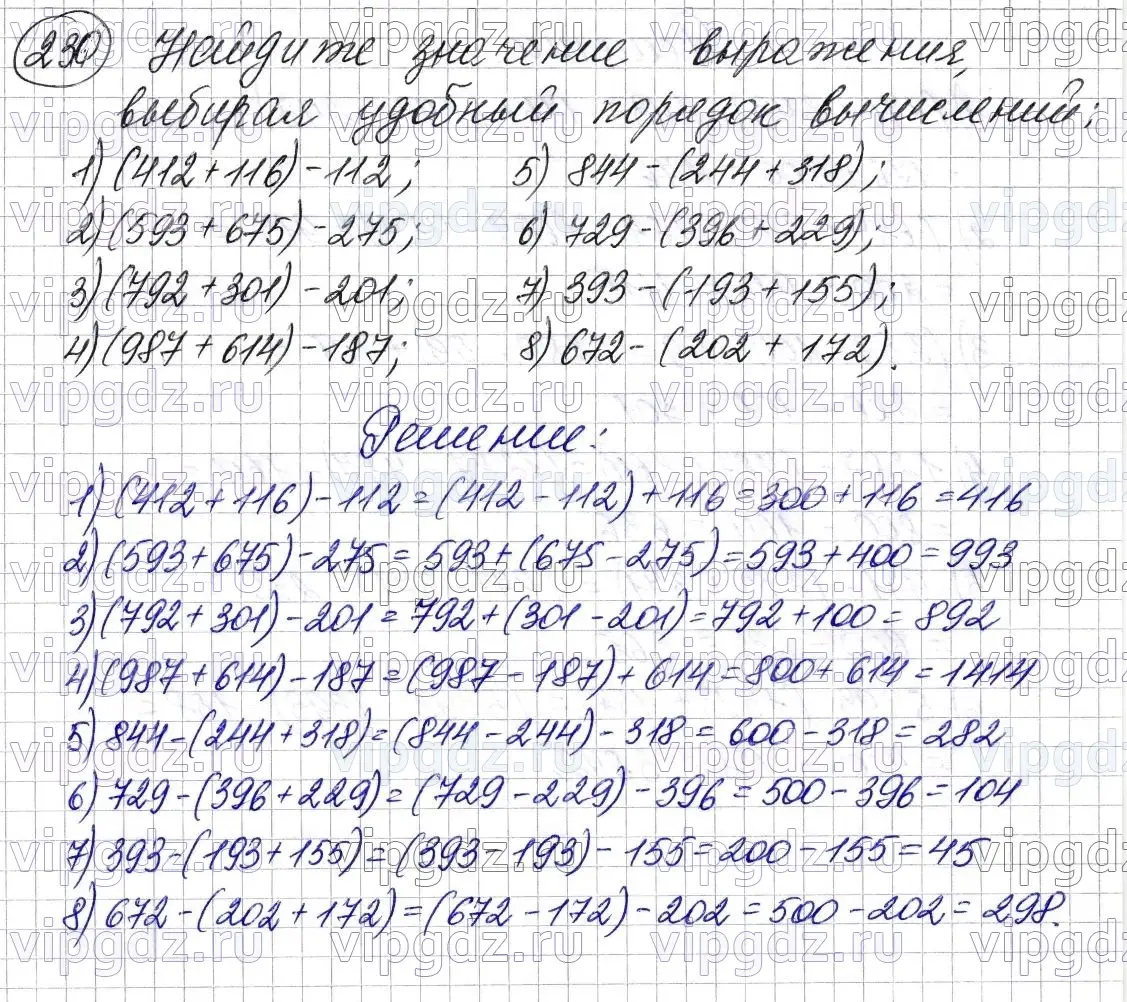 230 Найдите значение выражения,
выбирая удобный порядок вычислений:
1) (412 + 116) - 112; 5) 844 - (244 + 318);
2) (593 + 675) - 275; 6) 729 - (396 + 229);
3) (792 + 301) - 201; 7) 393 - (193 + 155);
4) (987 + 614) - 187; 8) 672 - (202 + 172).
Решение:
1) (412 + 116) - 112 = (412 - 112) + 116 = 300 + 116 = 416
2) (593 + 675) - 275 = 593 + (675 - 275) = 593 + 400 = 993
3) (792 + 301) - 201 = 792 + (301 - 201) = 792 + 100 = 892
4) (987 + 614) - 187 = (987 - 187) + 614 = 800 + 614 = 1414
5) 844 - (244 + 318) = (844 - 244) - 318 = 600 - 318 = 282
6) 729 - (396 + 229) = (729 - 229) - 396 = 500 - 396 = 104
7) 393 - (193 + 155) = (393 - 193) - 155 = 200 - 155 = 45
8) 672 - (202 + 172) = (672 - 172) - 202 = 500 - 202 = 298.
vipgdz.ru